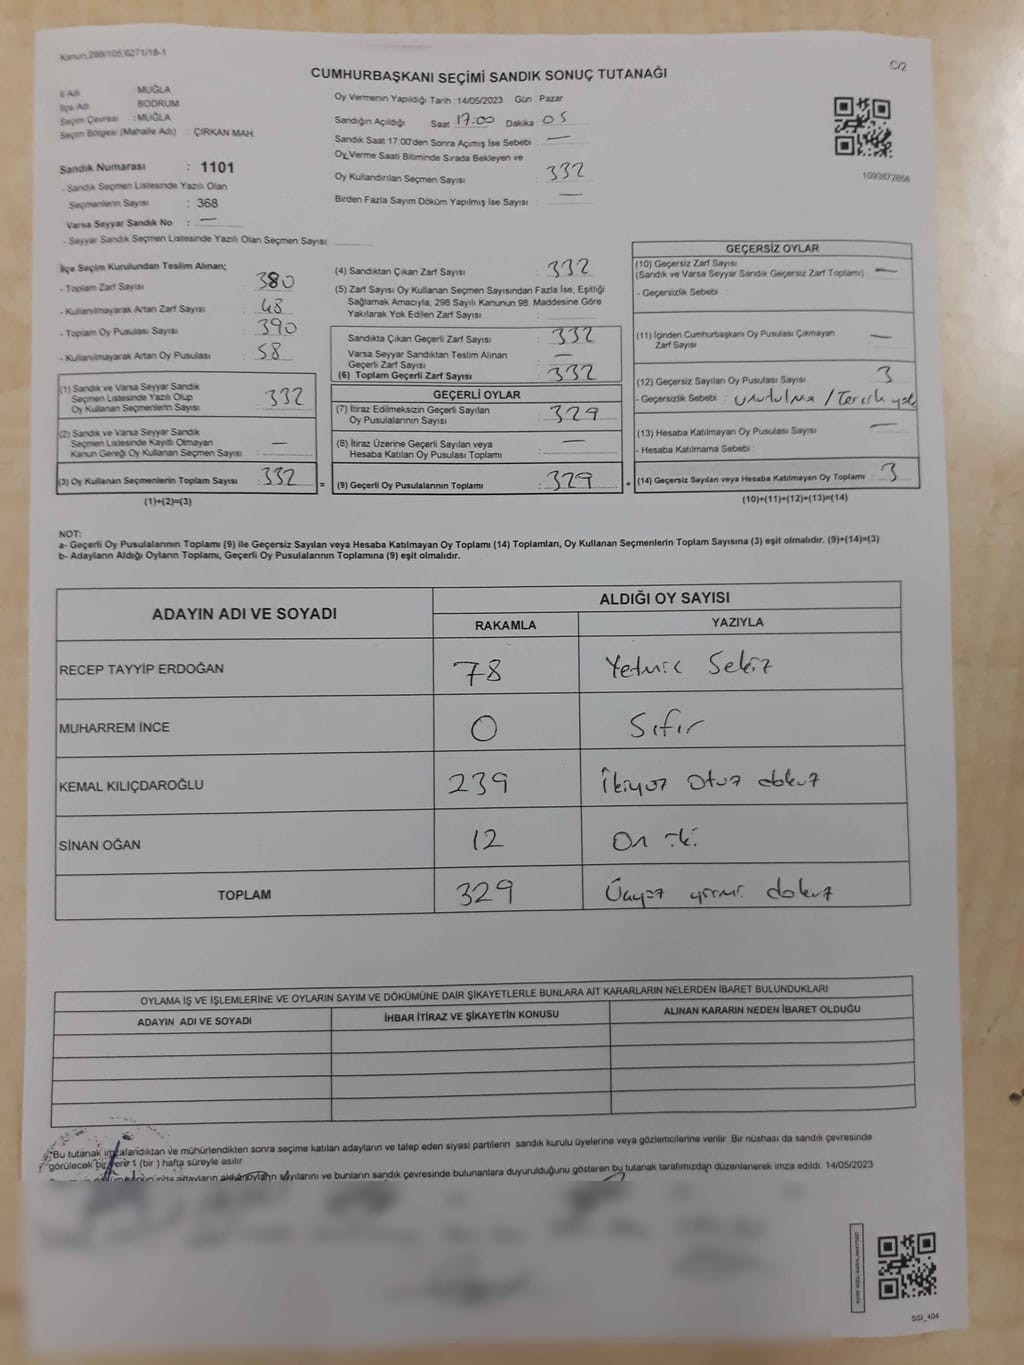 Kanun;298/105,6271/18-1
C/2
CUMHURBAŞKANI SEÇİMİ SANDIK SONUÇ TUTANAĞI
İl Adı : MUĞLA
İlçe Adı : BODRUM
Seçim Çevresi : MUĞLA
Seçim Bölgesi (Mahalle Adı) : ÇIRKAN MAH
Sandık Numarası : 1101
- Sandık Seçmen Listesinde Yazılı Olan
Seçmenlerin Sayısı : 368
Varsa Seyyar Sandık No : —
- Seyyar Sandık Seçmen Listesinde Yazılı Olan Seçmen Sayısı:
Oy Vermenin Yapıldığı Tarih :14/05/2023 Gün : Pazar
Sandığın Açıldığı Saat 17:00 Dakika : 05
Sandık Saat 17:00'den Sonra Açımış İse Sebebi : —
Oy Verme Saati Bitiminde Sırada Bekleyen ve
Oy Kullandırılan Seçmen Sayısı : 332
Birden Fazla Sayım Döküm Yapılmış İse Sayısı : —
1093872858
İlçe Seçim Kurulundan Teslim Alınan;
- Toplam Zarf Sayısı : 380
- Kullanılmayarak Artan Zarf Sayısı : 48
- Toplam Oy Pusulası Sayısı : 390
- Kullanılmayarak Artan Oy Pusulası : 58
(1) Sandık ve Varsa Seyyar Sandık
Seçmen Listesinde Yazılı Olup
Oy Kullanan Seçmenlerin Sayısı : 332
(2) Sandık ve Varsa Seyyar Sandık
Seçmen Listesinde Kayıtlı Olmayan
Kanun Gereği Oy Kullanan Seçmen Sayısı : —
(3) Oy Kullanan Seçmenlerin Toplam Sayısı : 332 =
(1)+(2)=(3)
(4) Sandıktan Çıkan Zarf Sayısı : 332
(5) Zarf Sayısı Oy Kullanan Seçmen Sayısından Fazla İse, Eşitliği
Sağlamak Amacıyla; 298 Sayılı Kanunun 98. Maddesine Göre
Yakılarak Yok Edilen Zarf Sayısı :
Sandıkta Çıkan Geçerli Zarf Sayısı : 332
Varsa Seyyar Sandıktan Teslim Alınan
Geçerli Zarf Sayısı : —
(6) Toplam Geçerli Zarf Sayısı : 332
GEÇERLİ OYLAR
(7) İtiraz Edilmeksizin Geçerli Sayılan
Oy Pusulalarının Sayısı : 329
(8) İtiraz Üzerine Geçerli Sayılan veya
Hesaba Katılan Oy Pusulası Toplamı : —
(9) Geçerli Oy Pusulalarının Toplamı : 329 +
GEÇERSİZ OYLAR
(10) Geçersiz Zarf Sayısı
(Sandık ve Varsa Seyyar Sandık Geçersiz Zarf Toplamı) : —
- Geçersizlik Sebebi :
(11) İçinden Cumhurbaşkanı Oy Pusulası Çıkmayan
Zarf Sayısı : —
(12) Geçersiz Sayılan Oy Pusulası Sayısı : 3
- Geçersizlik Sebebi : unutulma / Tercih yok
(13) Hesaba Katılmayan Oy Pusulası Sayısı : —
- Hesaba Katılmama Sebebi :
(14) Geçersiz Sayılan veya Hesaba Katılmayan Oy Toplamı : 3
(10)+(11)+(12)+(13)=(14)
NOT:
a- Geçerli Oy Pusulalarının Toplamı (9) ile Geçersiz Sayılan veya Hesaba Katılmayan Oy Toplamı (14) Toplamları, Oy Kullanan Seçmenlerin Toplam Sayısına (3) eşit olmalıdır. (9)+(14)=(3)
b- Adayların Aldığı Oyların Toplamı, Geçerli Oy Pusulalarının Toplamına (9) eşit olmalıdır.
ADAYIN ADI VE SOYADI ALDIĞI OY SAYISI
RAKAMLA YAZIYLA
RECEP TAYYİP ERDOĞAN 78 Yetmiş Sekiz
MUHARREM İNCE 0 Sıfır
KEMAL KILIÇDAROĞLU 239 İkiyüz Otuz dokuz
SİNAN OĞAN 12 On iki
TOPLAM 329 Üçyüz yirmi dokuz
OYLAMA İŞ VE İŞLEMLERİNE VE OYLARIN SAYIM VE DÖKÜMÜNE DAİR ŞİKAYETLERLE BUNLARA AİT KARARLARIN NELERDEN İBARET BULUNDUKLARI
ADAYIN ADI VE SOYADI İHBAR İTİRAZ VE ŞİKAYETİN KONUSU ALINAN KARARIN NEDEN İBARET OLDUĞU
*Bu tutanak imzalandıktan ve mühürlendikten sonra seçime katılan adayların ve talep eden siyasi partilerin sandık kurulu üyelerine veya gözlemcilerine verilir. Bir nüshası da sandık çevresinde
görülecek bir yere 1 (bir) hafta süreyle asılır.
adayların aldığı oyların sayılarını ve bunların sandık çevresinde bulunanlara duyurulduğunu gösteren bu tutanak tarafımızdan düzenlenerek imza edildi. 14/05/2023
SSI_404